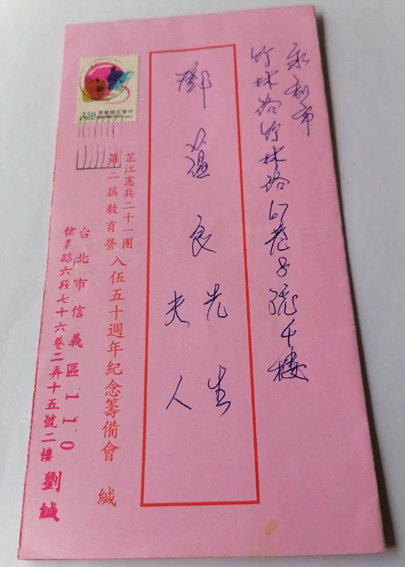 永和市
竹林路竹林路67巷8號4樓
鄧蘊良先生
夫人
芷江憲兵二十一團
第二屆教育營
入伍五十週年紀念籌備會 緘
台北市信義區110
信義路六段七十六巷二弄十五號二樓 劉緘
3.50